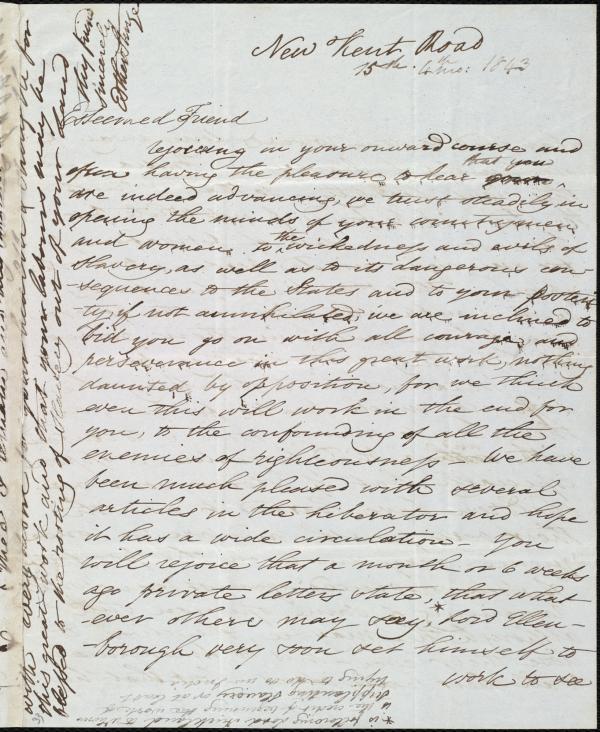 New Kent Road
15th. 4th mo: 1843
Esteemed Friend
rejoicing in your onward course and
often having the pleasure to hear that you
are indeed advancing, we trust steadily, in
opening the minds of your countrymen
and women to the wickedness and evils of
slavery, as well as to its dangerous con-
-sequences to the States and to your posteri
ty, if not annihilated; we are inclined to
bid you go on with all courage and
perseverance in this great work, nothing
daunted by opposition, for we think
even this will work in the end for
you, to the confounding of all the
enemies of righteousness - We have
been much pleased with several
articles in the Liberator and hope
it has a wide circulation - You
will rejoice that a month or 6 weeks
ago private letters state, that what
-ever others may say,* Lord Ellen-
-borough very soon set himself to
work to see
* in following Lord
the credit of beginning the work of
Slavery or at least
trying to do so in India
with every
this great work and that your labours may be
blessed to the rooting of Slavery out of your Land
thy friend
sincerely